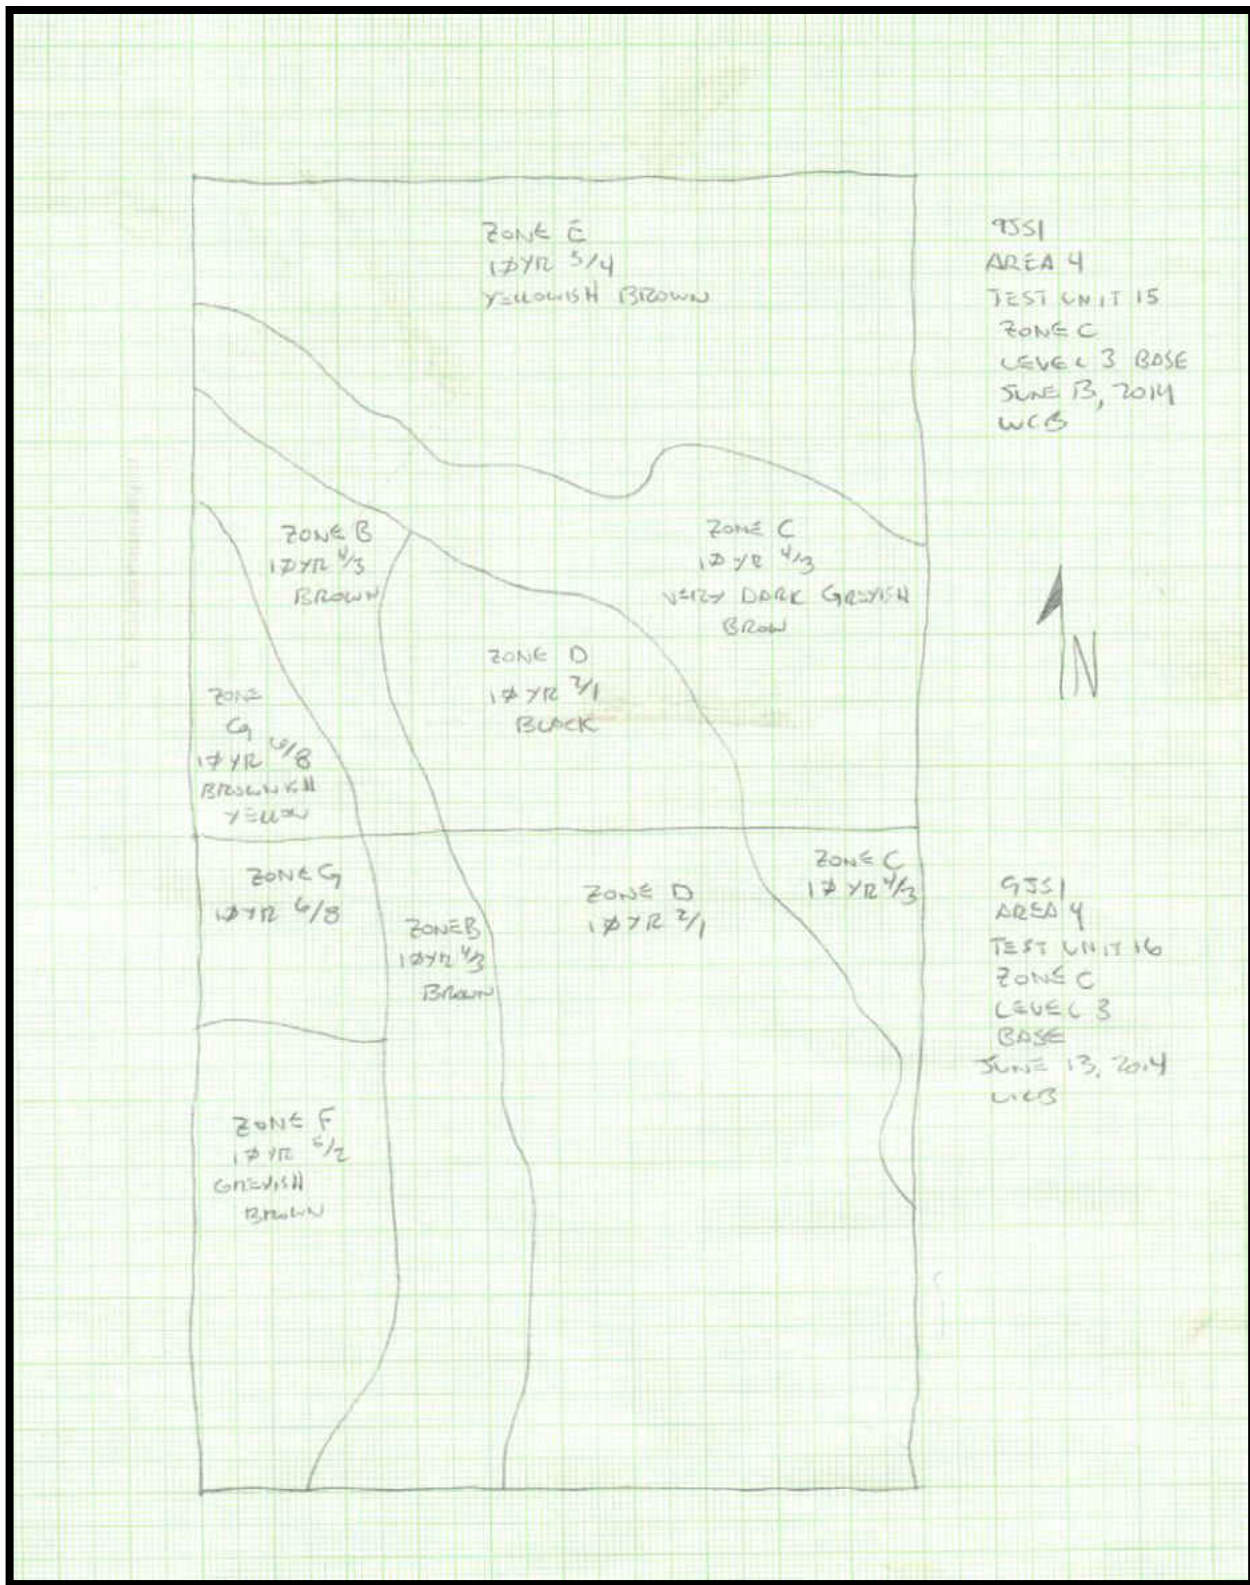 ZONE E
1ØYR 5/4
YELLOWISH BROWN
9JS1
AREA 4
TEST UNIT 15
ZONE C
LEVEL 3 BASE
JUNE 13, 2014
WCB
ZONE B
1ØYR 4/3
BROWN
ZONE C
1Ø YR 4/3
VERY DARK GREYISH
BROW
N
ZONE D
1Ø YR 2/1
BLACK
ZONE
G
1Ø YR 6/8
BROWNISH
YELLOW
ZONE G
1ØYR 6/8
ZONE B
1ØYR 4/3
BROWN
ZONE D
1ØYR 2/1
ZONE C
1Ø YR 4/3
9JS1
AREA 4
TEST UNIT 16
ZONE C
LEVEL 3
BASE
JUNE 13, 2014
WCB
ZONE F
1Ø YR 5/2
GREYISH
BROWN